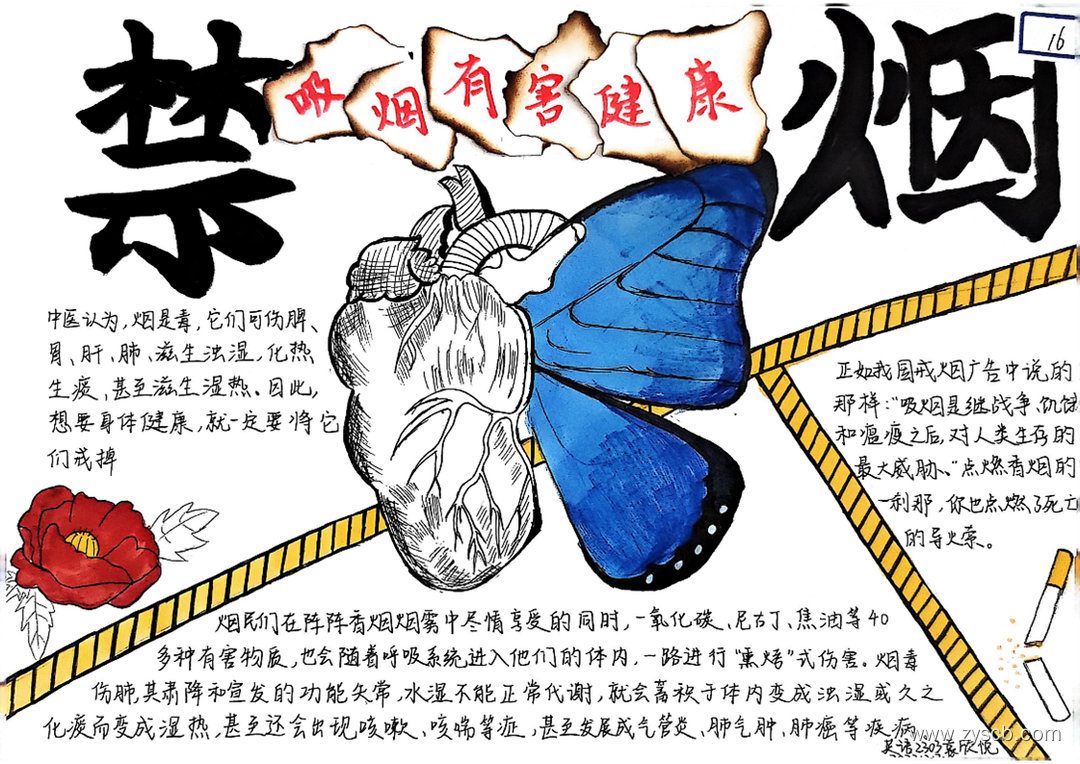 禁烟
吸烟有害健康
16
中医认为,烟是毒,它们可伤脾、
胃、肝、肺、滋生浊湿,化热
生痰、甚至滋生湿热。因此,
想要身体健康,就一定要将它
们戒掉
正如我国戒烟广告中说的
那样:"吸烟是继战争、饥饿
和瘟疫之后,对人类生存的
最大威胁、"点燃香烟的
一刹那,你也点燃了死亡
的导火索。
烟民们在阵阵香烟烟雾中尽情享受的同时,一氧化碳、尼古丁、焦油等40
多种有害物质,也会随着呼吸系统进入他们的体内,一路进行"熏烤"式伤害。烟毒
伤肺,其肃降和宣发的功能失常,水湿不能正常代谢,就会蓄积于体内变成浊湿或久之
化痰而变成湿热,甚至还会出现咳嗽、咳喘等症,甚至发展成气管炎、肺气肿、肺癌等疾病
www.zyscb.com
2303袁欣悦